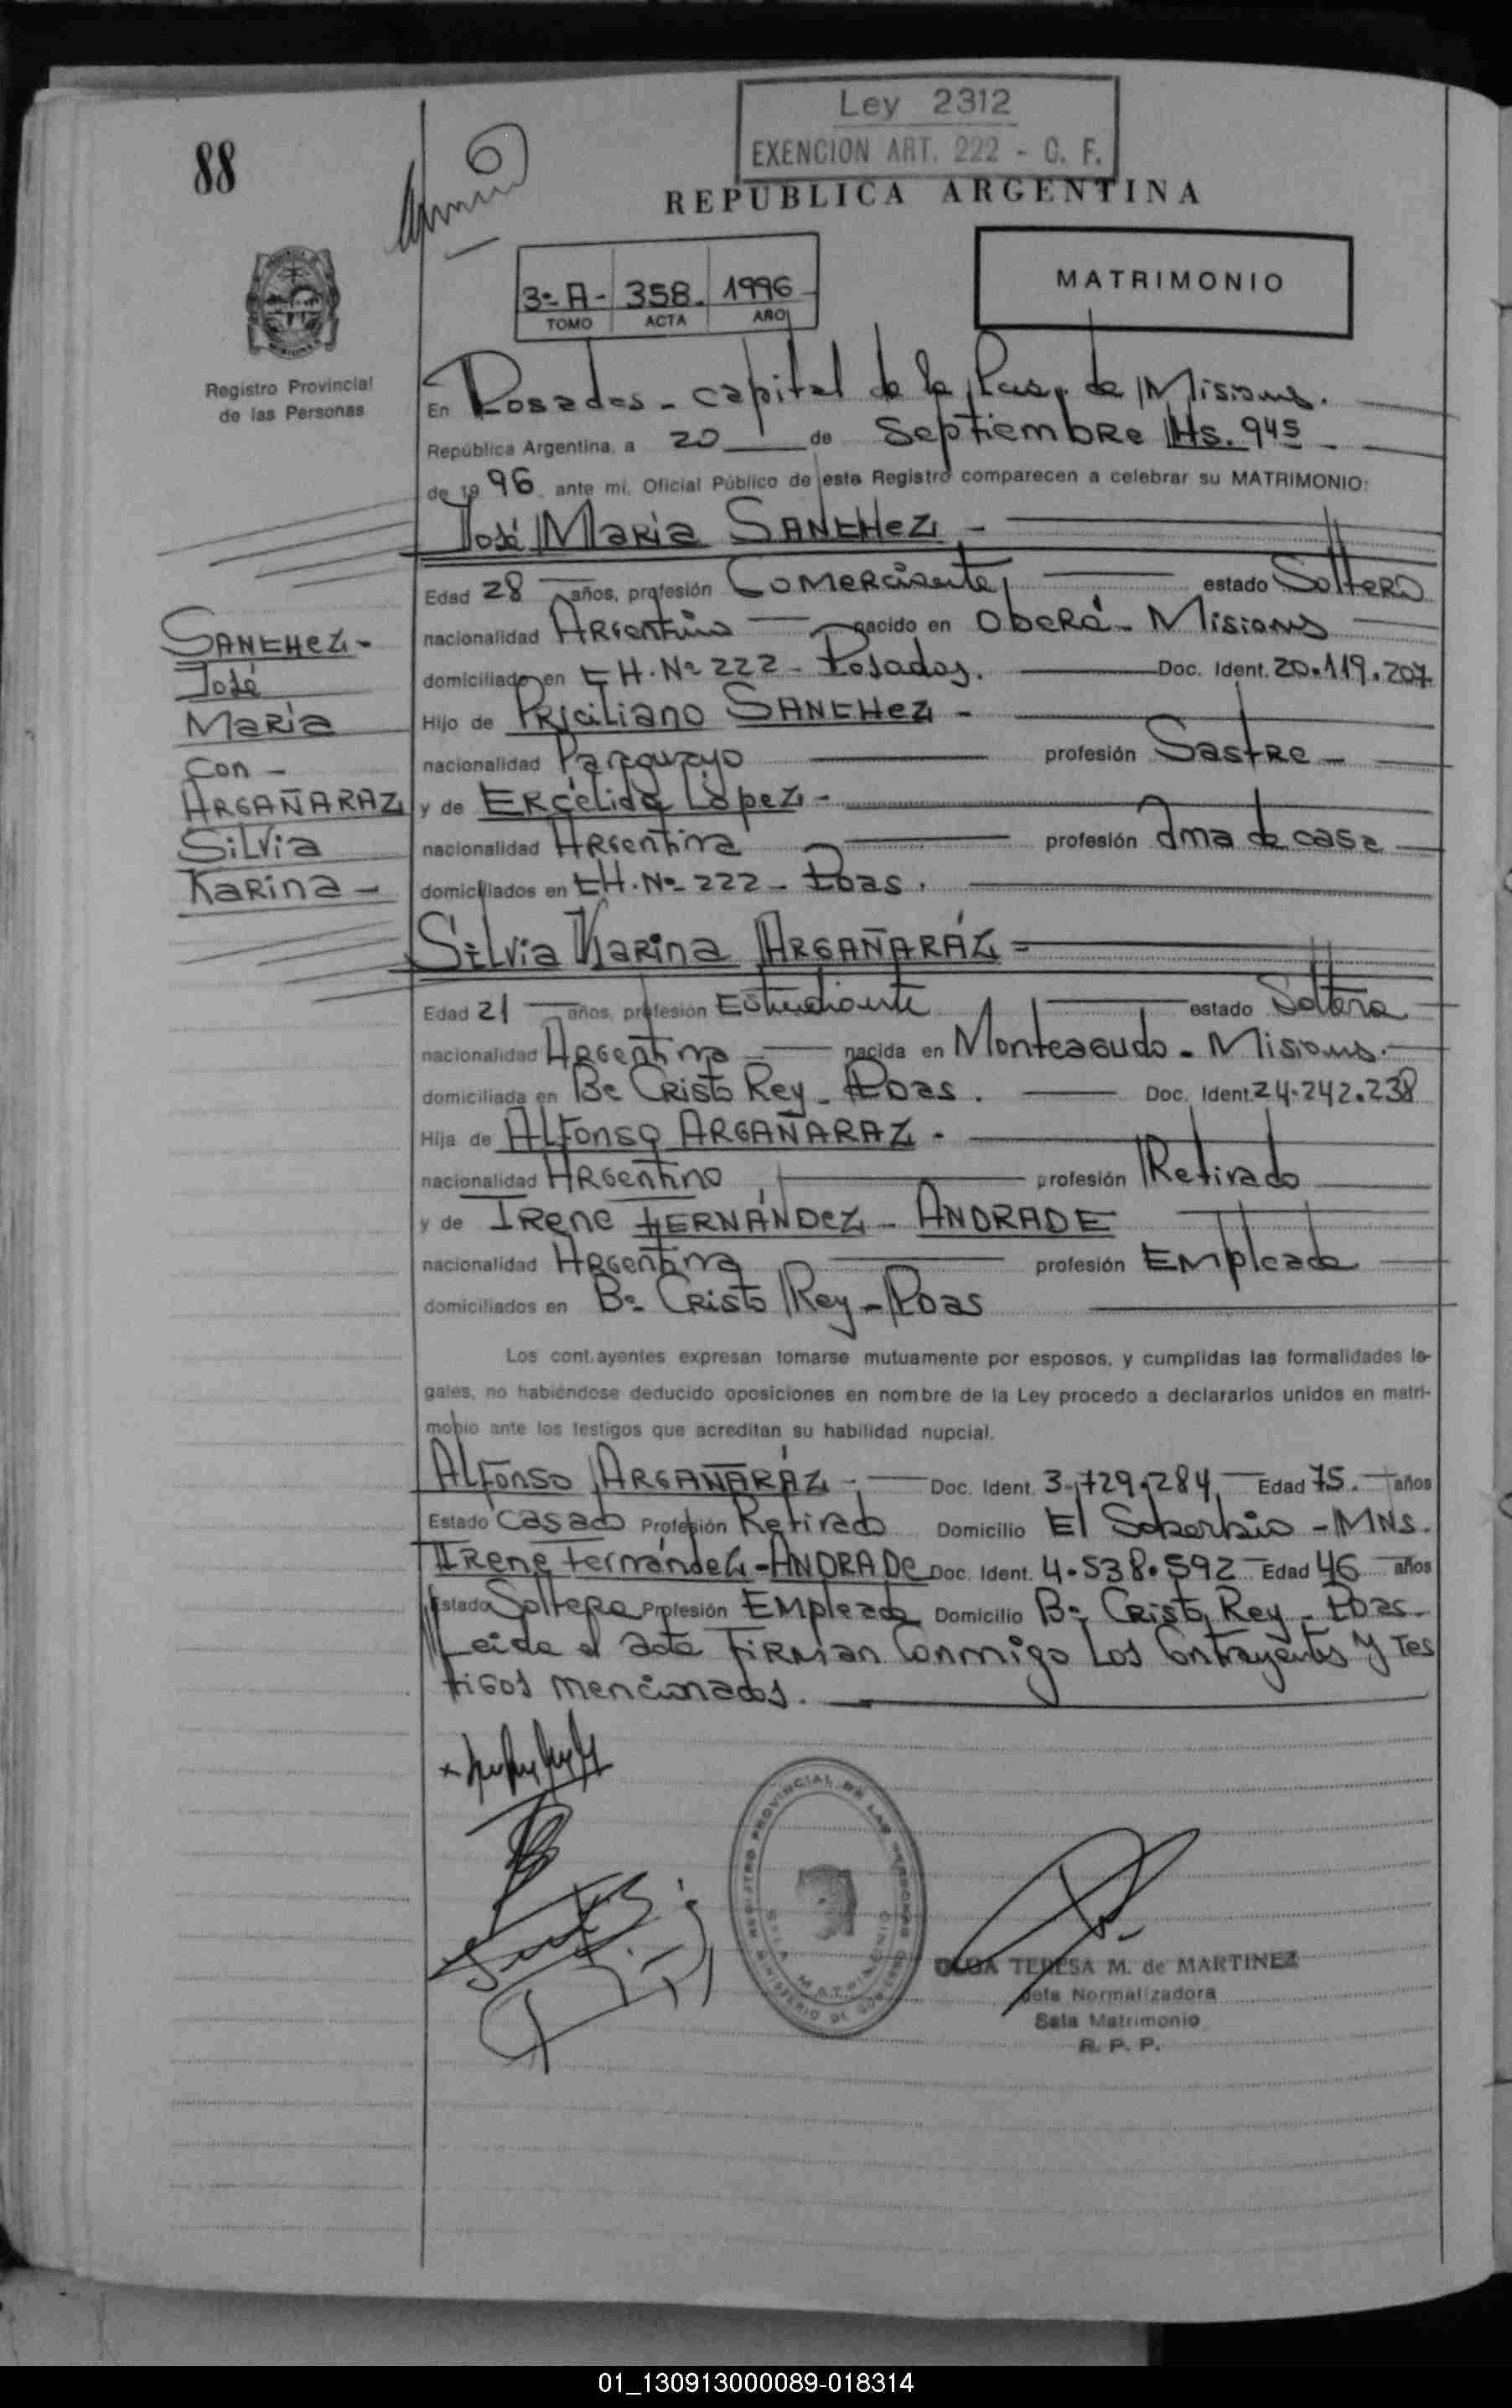 Ley 2312
EXENCION ART. 222 - C. F.
88
REPUBLICA ARGENTINA
3º A- 358. 1996
TOMO ACTA AÑO
MATRIMONIO
Registro Provincial
de las Personas
En Posadas - capital de la de Misiones.
República Argentina, a 20 de Septiembre Hs. 945
de 1996, ante mi, Oficial Público de este Registro comparecen a celebrar su MATRIMONIO:
José Maria SANCHEZ -
Edad 28 años, profesión Comerciante, estado Soltero
nacionalidad Argentino nacido en Oberá - Misiones
domiciliado en CH. Nº 222 - Posadas. Doc. Ident. 20.119.207
Hijo de Prisciliano SANCHEZ -
nacionalidad Paraguayo profesión Sastre -
y de Ercelida López -
nacionalidad Argentina profesión Ama de casa
domiciliados en CH. Nº 222 - Pdas.
SANCHEZ -
José
Maria
con -
ARGAÑARAZ
Silvia
Karina -
Silvia Karina ARGAÑARÁZ =
Edad 21 años, profesión Estudiante estado Soltera
nacionalidad Argentina nacida en Monteagudo - Misiones.
domiciliada en Bº Cristo Rey - Pdas. Doc. Ident. 24.242.238
Hija de Alfonso ARGAÑARAZ -
nacionalidad Argentino profesión Retirado
y de Irene FERNÁNDEZ - ANDRADE
nacionalidad Argentina profesión Empleada
domiciliados en Bº Cristo Rey - Pdas
Los cont.ayentes expresan tomarse mutuamente por esposos, y cumplidas las formalidades le-
gales, no habiéndose deducido oposiciones en nombre de la Ley procedo a declararlos unidos en matri-
monio ante los testigos que acreditan su habilidad nupcial.
Alfonso ARGAÑARÁZ - Doc. Ident. 3.729.284 Edad 75. años
Estado Casado Profesión Retirado Domicilio El Soberbio - MNS.
Irene Fernández - ANDRADE Doc. Ident. 4.538.592 Edad 46 años
Estado Soltera Profesión Empleada Domicilio Bº Cristo Rey - Pdas.
Leida el acta Firman Conmigo Los Contrayentes y Tes
tigos mencionados.
REGISTRO PROVINCIAL DE LAS PERSONAS
SALA MATRIMONIO
MINISTERIO DE GOBIERNO
OLGA TERESA M. de MARTINEZ
Jefa Normalizadora
Sala Matrimonio
R. P. P.
01_130913000089-018314